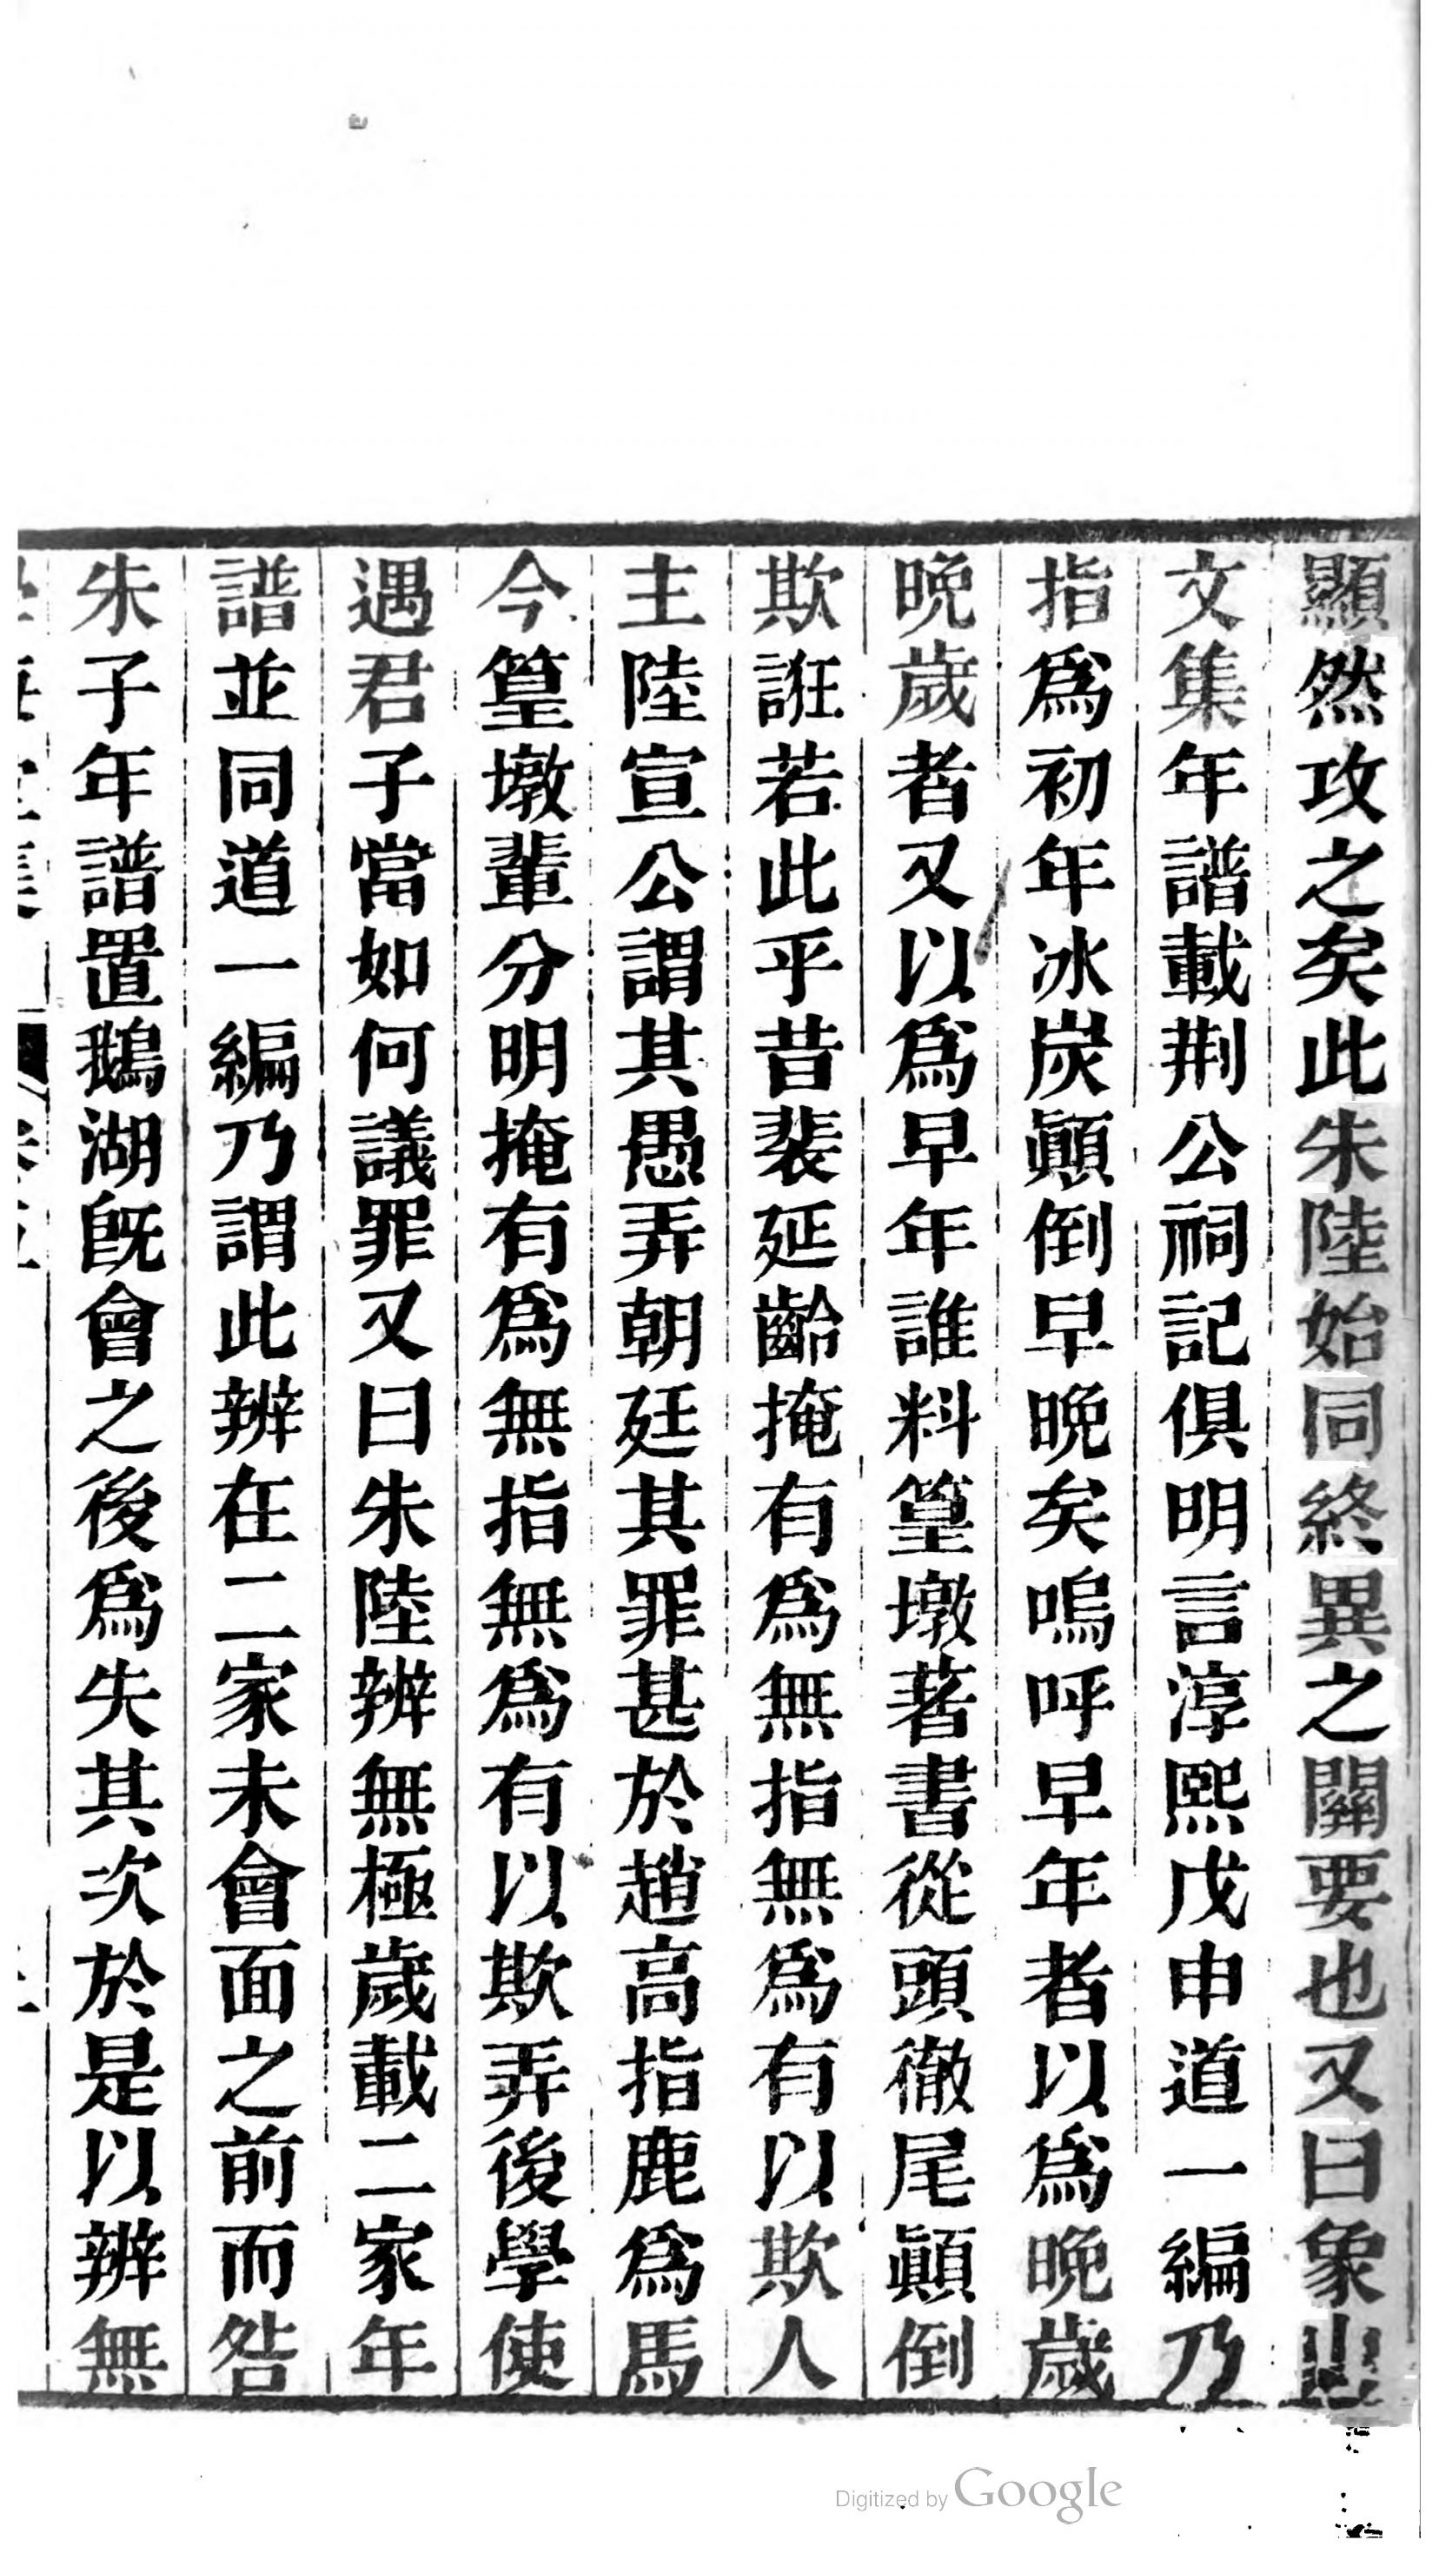 顯然攻之矣此朱陸始同終異之關要也又曰象山
文集年譜載荆公祠記俱明言淳熙戊申道一編乃
指爲初年冰炭顚倒早晚矣嗚呼早年者以爲晚歲
晚歲者又以爲早年誰料篁墩著書從頭徹尾顚倒
欺誑若此乎昔裴延齡掩有爲無指無爲有以欺人
主陸宣公謂其愚弄朝廷其罪甚於趙高指鹿爲馬
今篁墩輩分明掩有爲無指無爲有以欺弄後學使
遇君子當如何議罪又曰朱陸辨無極歲載二家年
譜並同道一編乃謂此辨在二家未會面之前而咎
朱子年譜置鵝湖旣會之後爲失其次於是以辨無
Digitized by Google